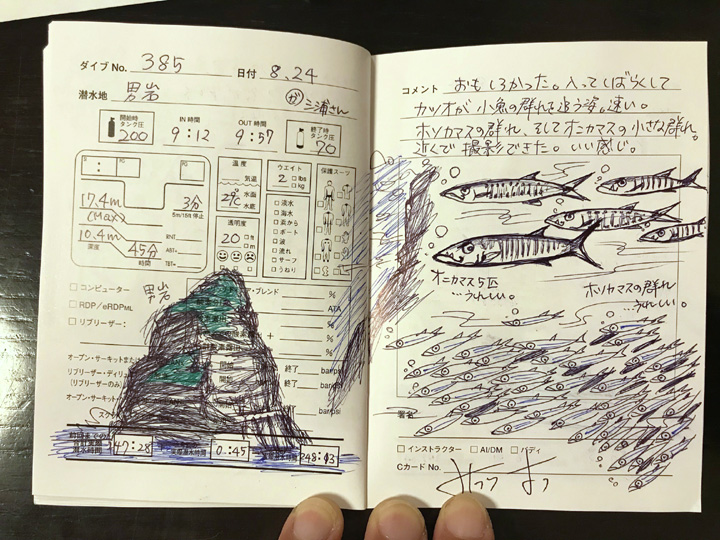 ダイブ No. 385 日付 8.24
潜水地 男岩 ガ 三浦さん
開始時タンク圧 200
IN 時間 9:12
OUT 時間 9:57
終了時タンク圧 70
17.4m (MAX)
3分
5m/18ft 停止
10.4m
深度
45分
時間
RNT
ABT=
TBT=
温度
気温
29℃ 水面
水底
透明度
20 ft
m
ウエイト
2 lbs
kg
淡水
海水
浜から
ボート
波
流れ
サーフ
うねり
保護スーツ
コンピューター
RDP/eRDPML
リブリーザー:
男岩
・ブレンド %
ATA
%
%
オープン・サーキットまた
リブリーザー・ディリュ
(リブリーザーのみ)
オープン・サーキット
終了 bar/psi
終了 bar/psi
bar/psi
スク
47:28
0:45
48:13
コメント おもしろかった。入ってしばらくして
カツオが小魚の群れを追う姿。速い。
ホソカマスの群れ、そしてオニカマスの小さな群れ。
近くで撮影できた。いい感じ。
オニカマス5匹
…うれしい。
ホソカマスの群れ
…うれしい。
署名
インストラクター AI/DM バディ
Cカード No.